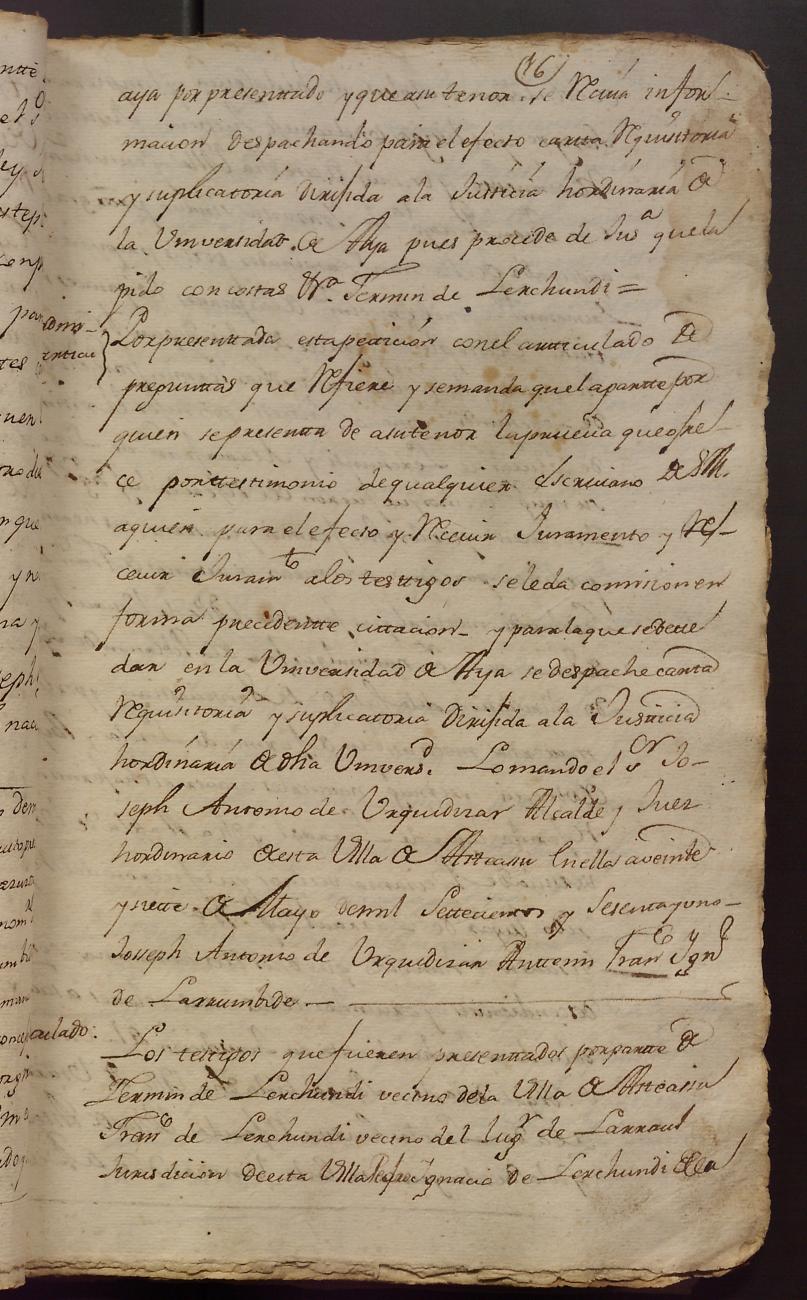 16
aya por presenttado y que a su tenor se Reciva infor-
macion despachando para el efecto cartta Requisitoria
y suplicatoria Dirijida a la Justticia hordinaria de
la Universidad de Aya pues procede de Jusª que la
pido con costas &ª Fermin de Lerchundi =
Por presenttada esta petticion con el artticulado de
pregunttas que Refiere y se manda que la partte por
quien se presentta de a su tenor la prueva que ofre-
ce por ttestimonio de qualquier Escrivano de S.M.
a quien para el efecto y Recevir Juramento y Re-
cevir Juramto a los testtigos se le da comision en
forma precedentte cittacion y para la que se deve
dar en la Universidad de Aya se despache cartta
Requisitoria y suplicatoria Dirijida a la Justticia
hordinaria de dha Universd. Lo mando el Sr Jo-
seph Antonio de Urquidizar Alcalde y Juez
hordinario de esta Villa de Asteasu En ella a veinte
y siette de Mayo de mil Settecientos y Sesenta y uno
Joseph Antonio de Urquidizar Anttemi Franco Ygno
de Larrumbide
Los testigos que fueren presenttados por partte de
Fermin de Lerchundi vecino de la Villa de Asteasu
Franco de Lerchundi vecino del lugr de Larraul
Jurisdicion de esta Villa Ygnacio de Lerchundi de la